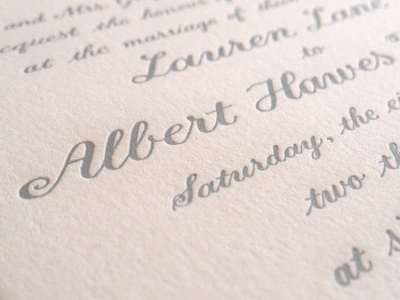 and Mrs.
equest the honour of
at the marriage of
Lauren Lane
to
Albert Hawes
Saturday, the ei
two th
at si